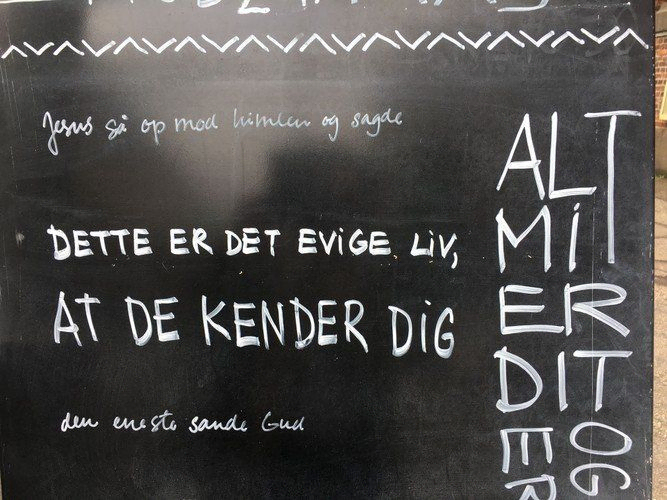 Jesus så op mod himlen og sagde
DETTE ER DET EVIGE LIV,
AT DE KENDER DIG
den eneste sande Gud
ALT
MIT
ER
DIT
OG
DE